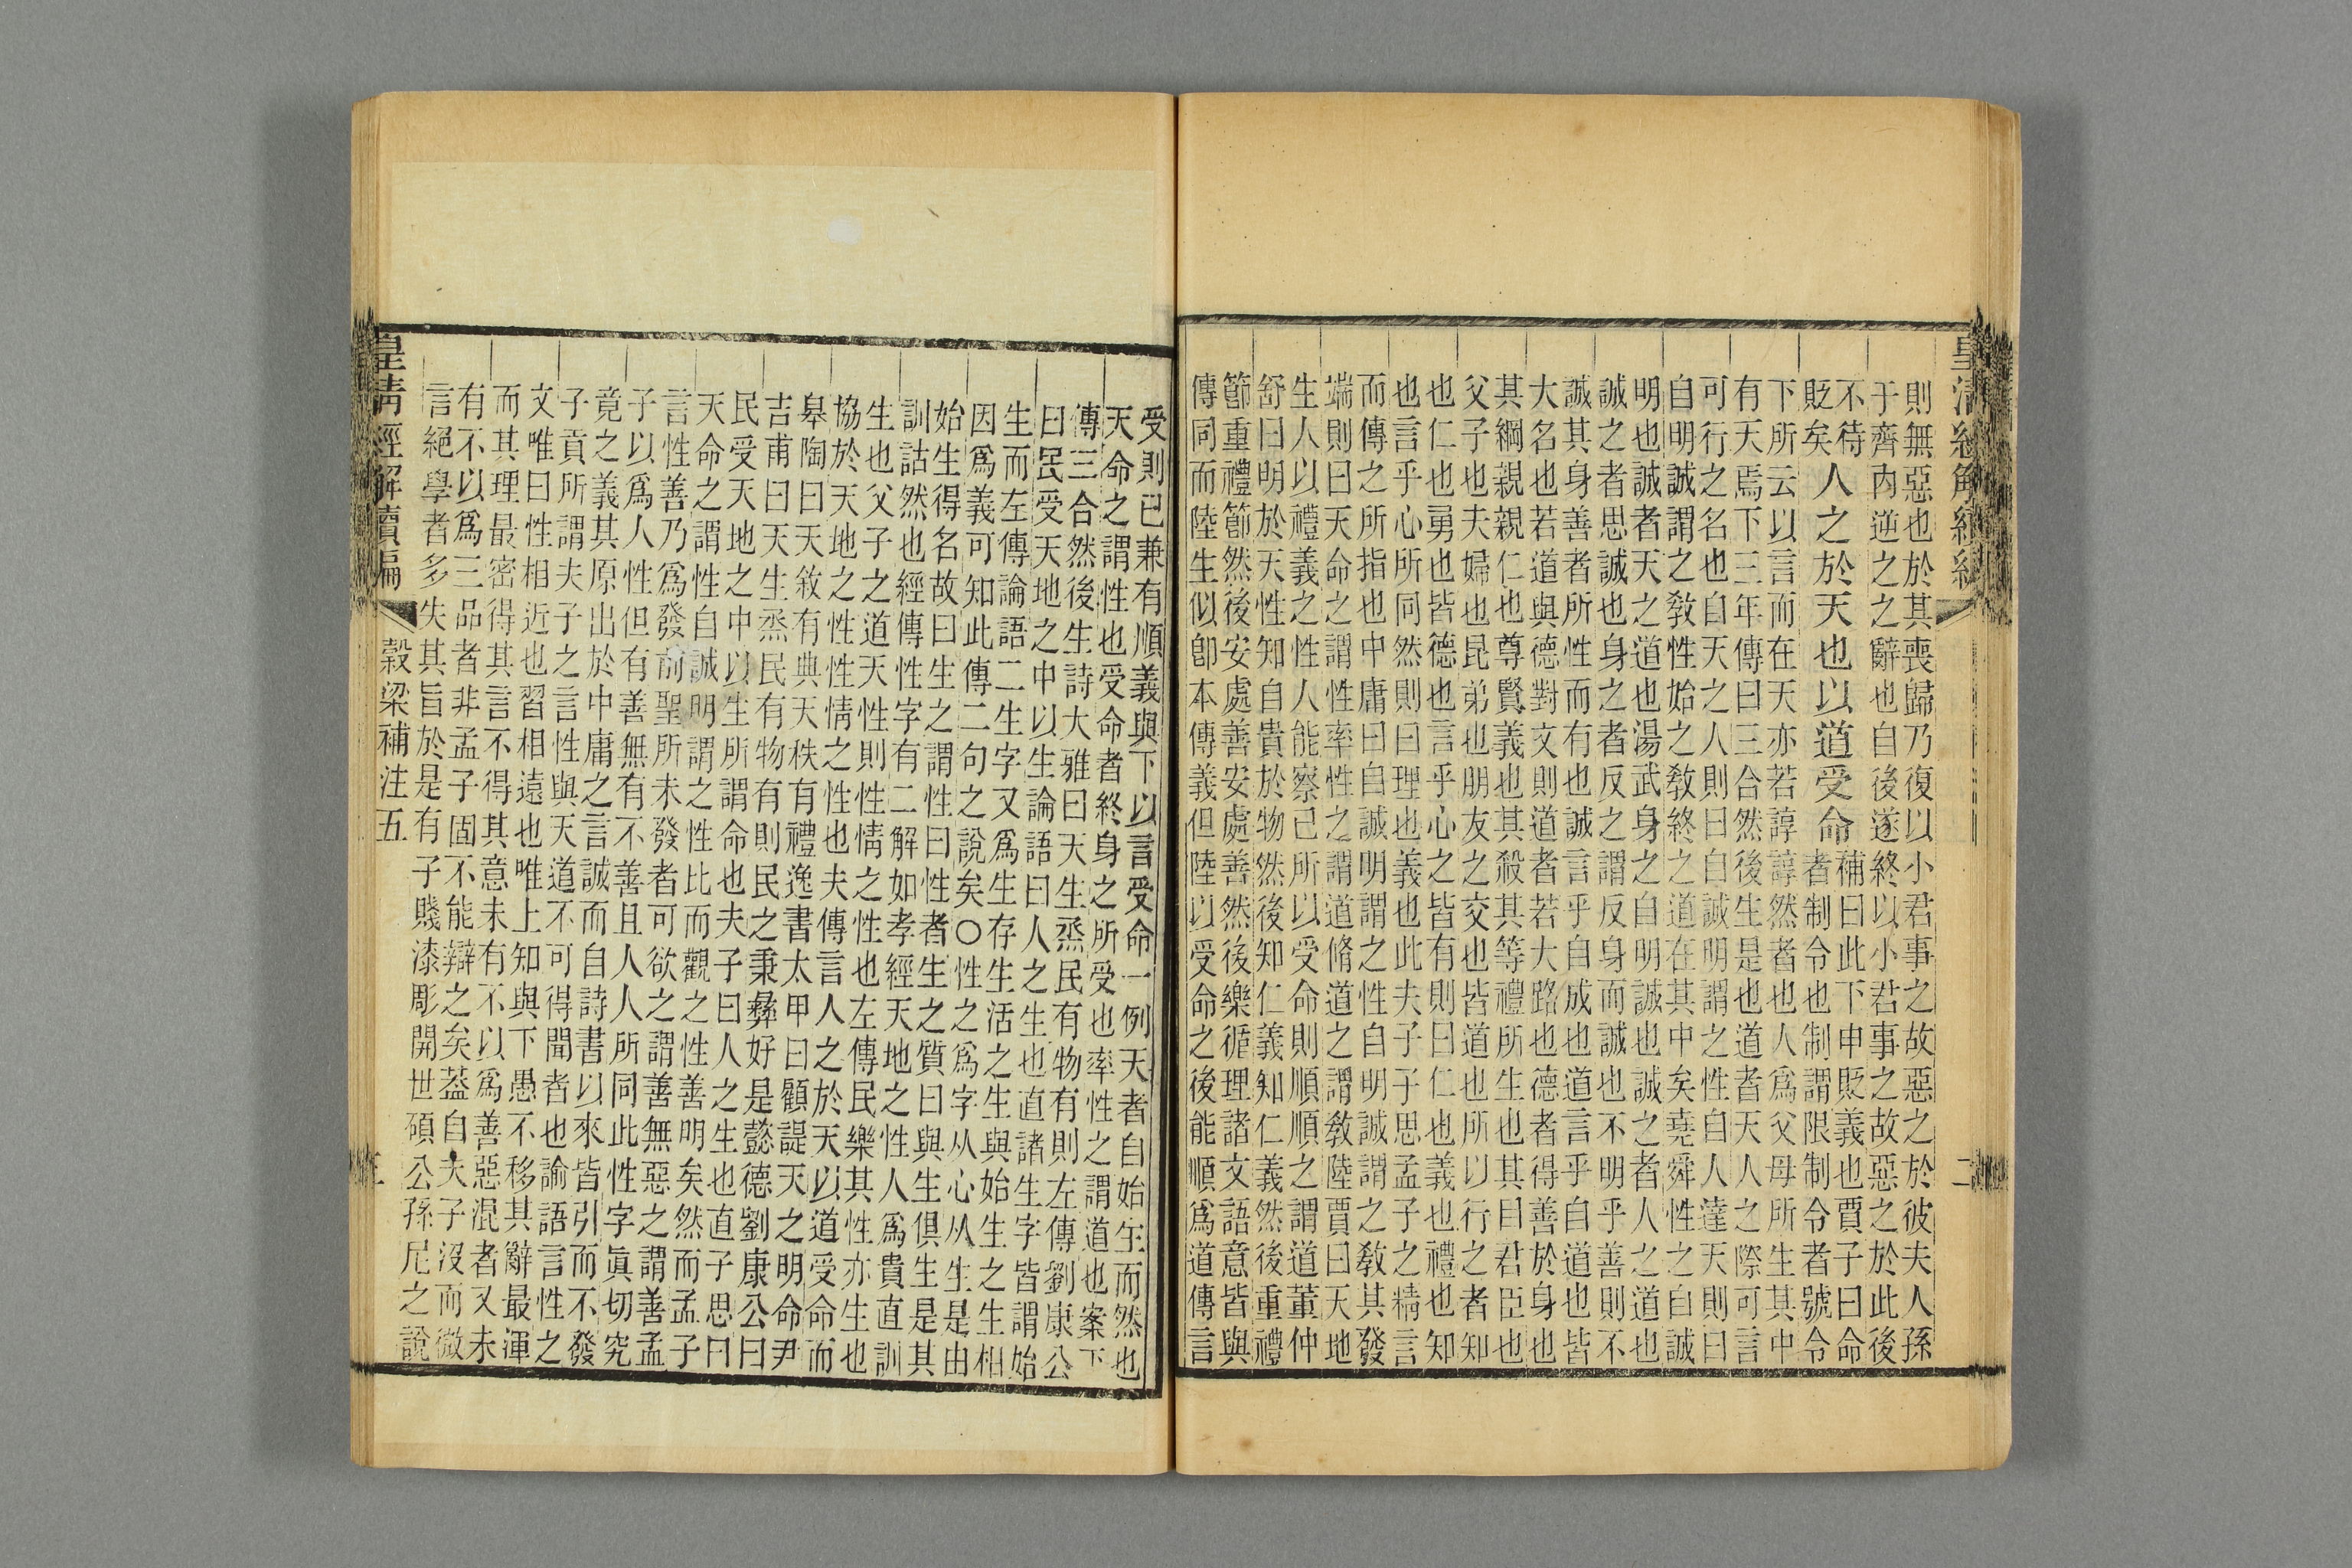 皇清經解續編
則無惡也於其喪歸乃復以小君事之故惡之於彼夫人孫
于齊內逆之之辭也自後遂終以小君事之故惡之於此後
不待
貶矣
人之於天也以道受命
補曰此下申貶義也賈子曰命
者制令也制謂限制令者號令
下所云以言而在天亦若諄諄然者也人爲父母所生其中
有天焉下三年傳曰三合然後生是也道者天人之際可言
可行之名也自天之人則曰自誠明謂之性自人達天則曰
自明誠謂之敎性始之敎終之道在其中矣堯舜性之自誠
明也誠者天之道也湯武身之自明誠也誠之者人之道也
誠之者思誠也身之者反之謂反身而誠也不明乎善則不
誠其身善者所性而有也誠言乎自成也道言乎自道也皆
大名也若道與德對文則道者若大路也德者得善於身也
其綱親親仁也尊賢義也其殺其等禮所生也其目君臣也
父子也夫婦也昆弟也朋友之交也皆道也所以行之者知
也仁也勇也皆德也言乎心之皆有則曰仁也義也禮也知
也言乎心所同然則曰理也義也此夫子子思孟子之精言
而傳之所指也中庸曰自誠明謂之性自明誠謂之敎其發
端則曰天命之謂性率性之謂道脩道之謂敎陸賈曰天地
生人以禮義之性人能察己所以受命則順順之謂道董仲
舒曰明於天性知自貴於物然後知仁義知仁義然後重禮
節重禮節然後安處善安處善然後樂循理諸文語意皆與
傳同而陸生似卽本傳義但陸以受命之後能順爲道傳言
二
受則已兼有順義與下以言受命一例天者自始生而然也
天命之謂性也受命者終身之所受也率性之謂道也案下
傳三合然後生詩大雅曰天生烝民有物有則左傳劉康公
曰民受天地之中以生論語曰人之生也直諸生字皆謂始
生而左傳論語二生字又爲生存生活之生與始生之生相
因爲義可知此傳二句之說矣○性之爲字从心从生是由
始生得名故曰生之謂性曰性者生之質曰與生俱生是其
訓詁然也經傳性字有二解如孝經天地之性人爲貴直訓
生也父子之道天性則性情之性也左傳民樂其性亦生也
協於天地之性性情之性也夫傳言人之於天以道受命而
皋陶曰天敘有典天秩有禮逸書太甲曰顧諟天之明命尹
吉甫曰天生烝民有物有則民之秉彝好是懿德劉康公曰
民受天地之中以生所謂命也夫子曰人之生也直子思曰
天命之謂性自誠明謂之性比而觀之性善明矣然而孟子
言性善乃爲發前聖所未發者可欲之謂善無惡之謂善孟
子以爲人性但有善無有不善且人人所同此性字眞切究
竟之義其原出於中庸之言誠而自詩書以來皆引而不發
子貢所謂夫子之言性與天道不可得聞者也論語言性之
文唯曰性相近也習相遠也唯上知與下愚不移其辭最渾
而其理最密得其言不得其意未有不以爲善惡混者又未
有不以爲三品者非孟子固不能辯之矣蓋自夫子沒而微
言絕學者多失其旨於是有子賤漆彫開世碩公孫尼之說
皇清經解續編
穀梁補注五